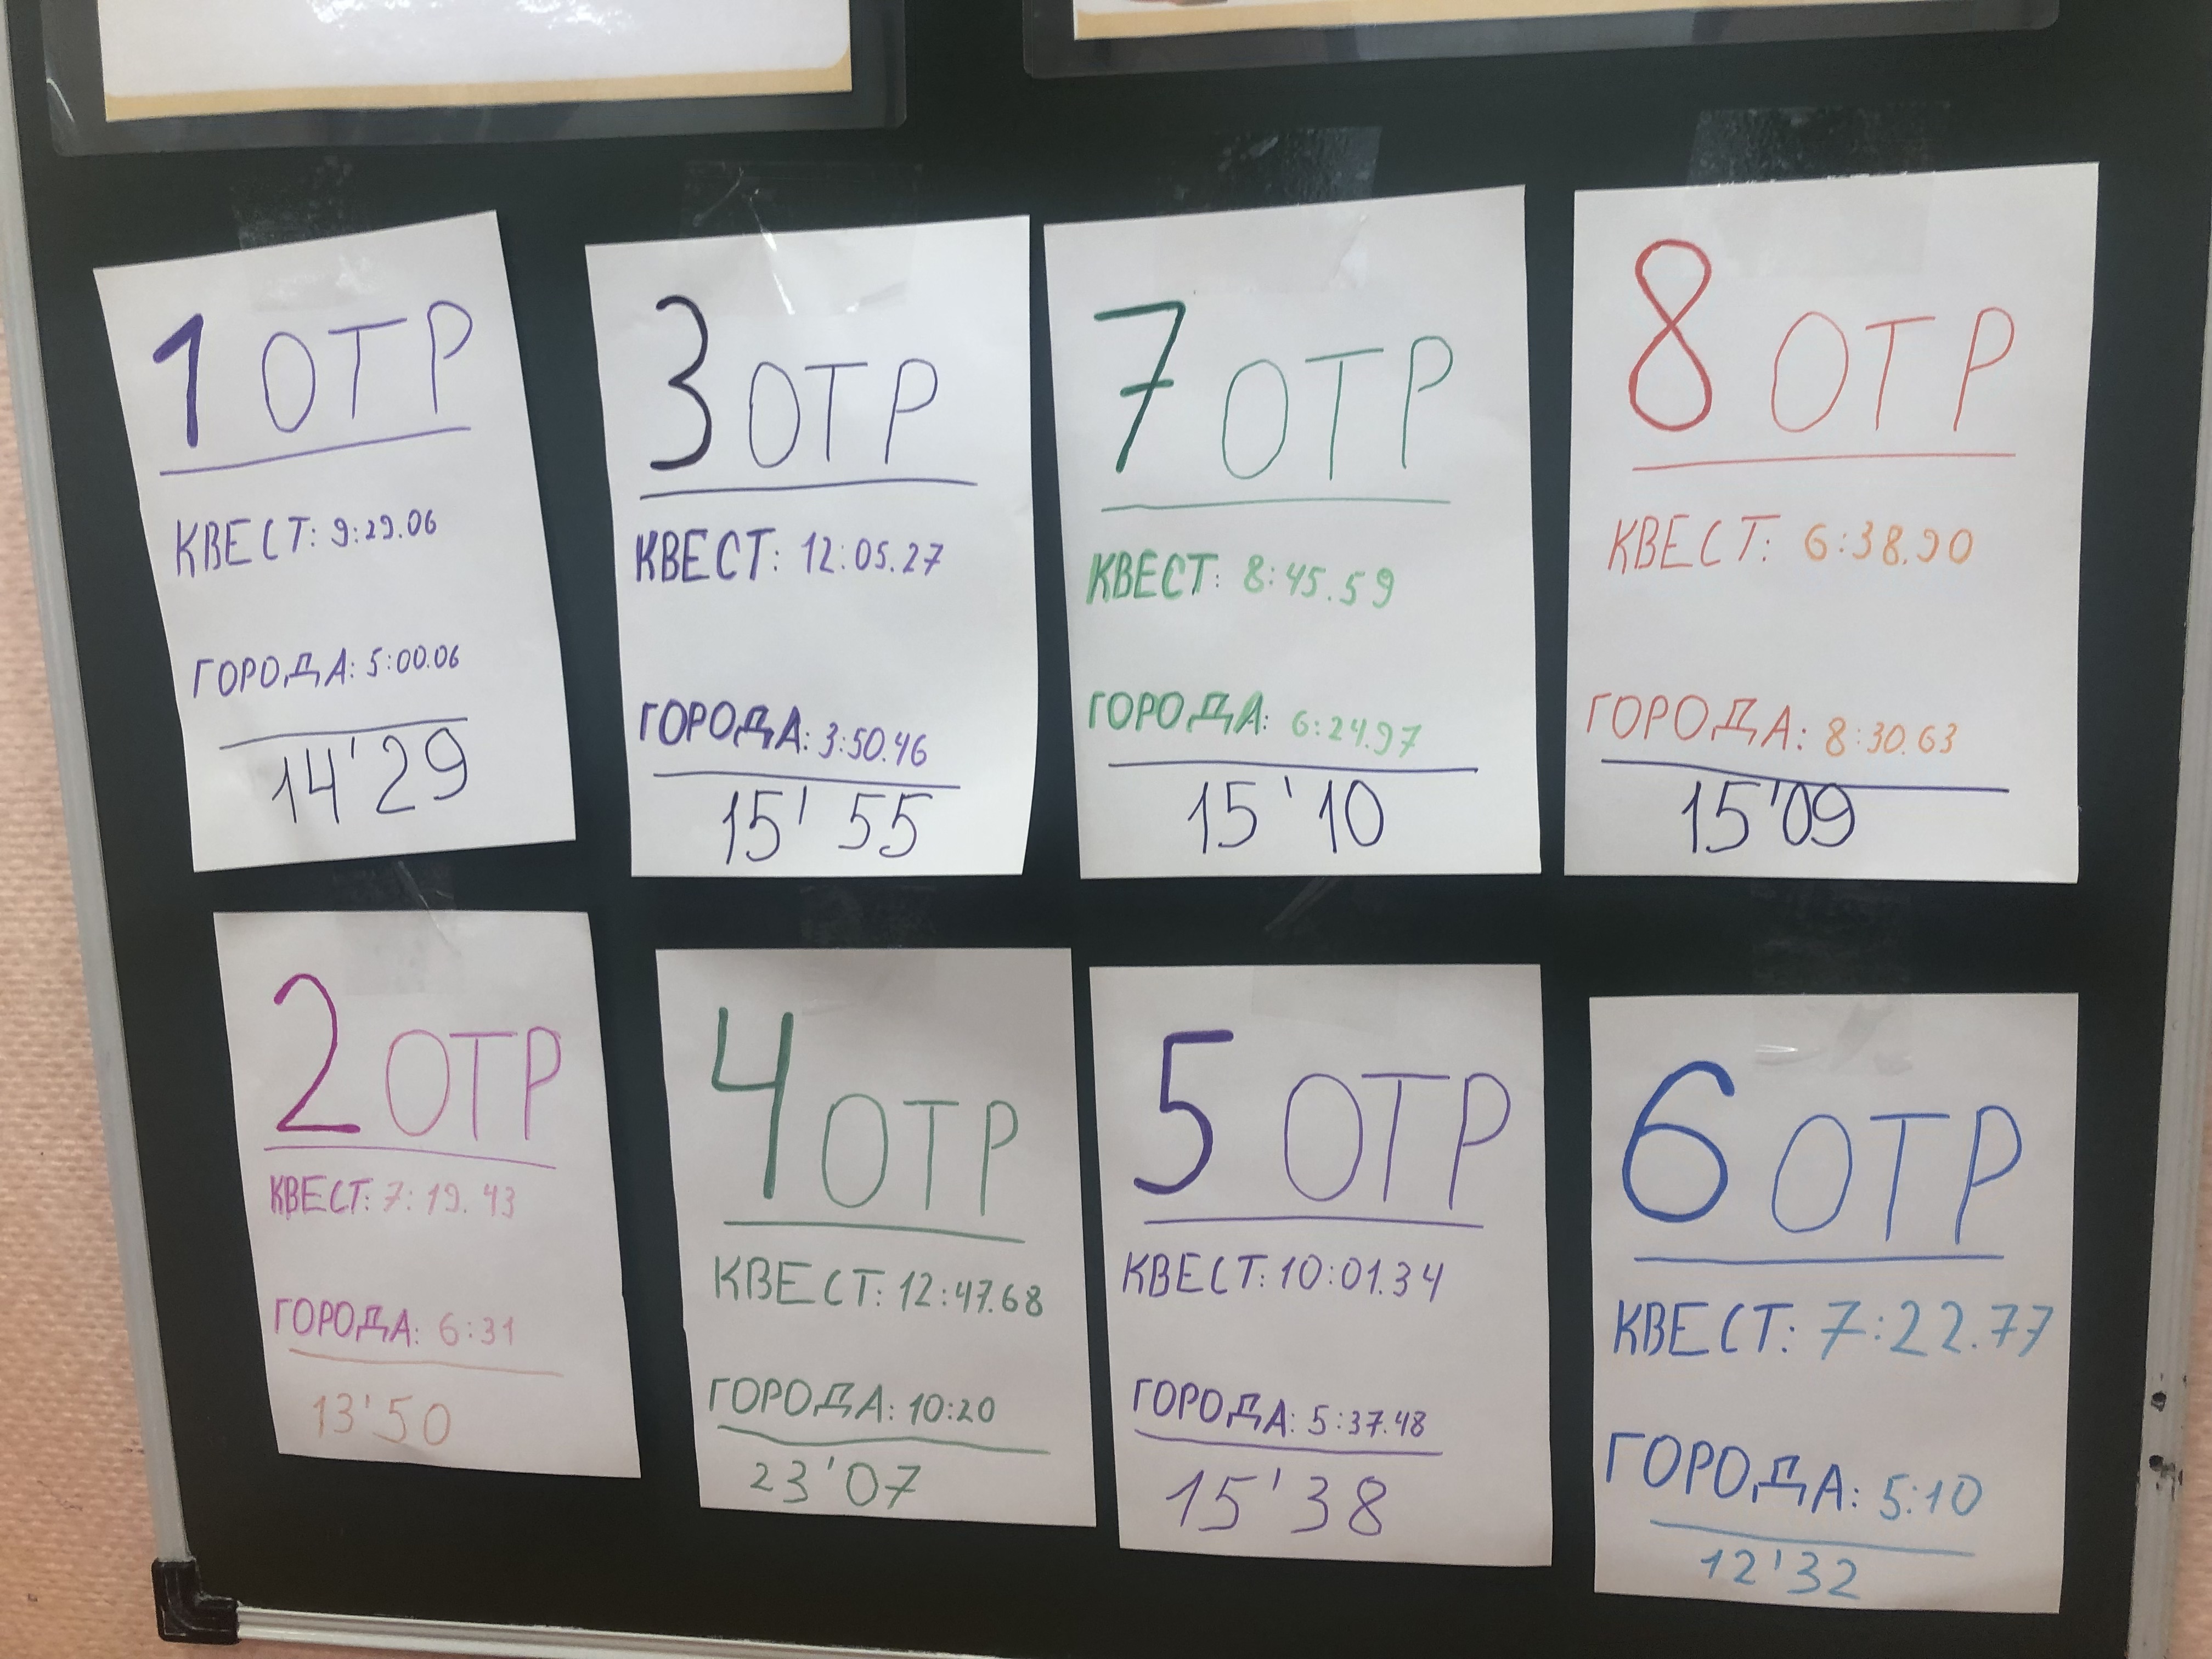 1 ОТР
КВЕСТ: 9:29.06
ГОРОДА: 5:00.06
14'29
3 ОТР
КВЕСТ: 12:05.27
ГОРОДА: 3:50.46
15'55
7 ОТР
КВЕСТ: 8:45.59
ГОРОДА: 6:24.97
15'10
8 ОТР
КВЕСТ: 6:38.90
ГОРОДА: 8:30.63
15'09
2 ОТР
КВЕСТ: 7:19.43
ГОРОДА: 6:31
13'50
4 ОТР
КВЕСТ: 12:47.68
ГОРОДА: 10:20
23'07
5 ОТР
КВЕСТ: 10:01.34
ГОРОДА: 5:37.48
15'38
6 ОТР
КВЕСТ: 7:22.77
ГОРОДА: 5:10
12'32